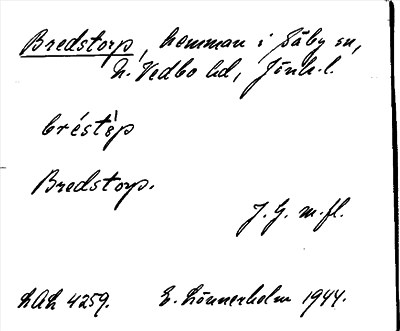 Bredstorp, hemman i Säby sn,
N. Vedbo hd, Jönk. l.
bréstòp
Bredstorp.
J. G. m. fl.
LAL 4259. E. Lönnerholm 1944.